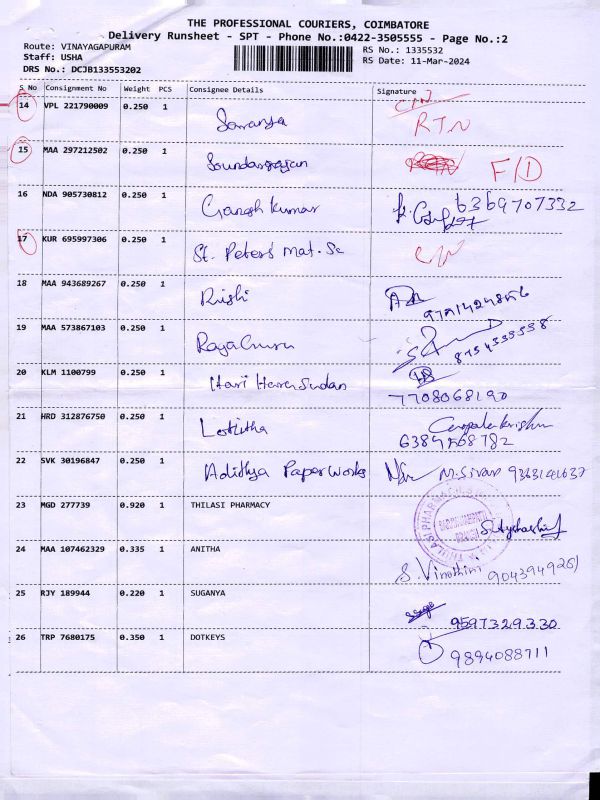 THE PROFESSIONAL COURIERS, COIMBATORE
Delivery Runsheet - SPT - Phone No.:0422-3505555 - Page No.:2
Route: VINAYAGAPURAM
RS No.: 1335532
Staff: USHA
RS Date: 11-Mar-2024
DRS No.: DCJB133553202
S No Consignment No Weight PCS Consignee Details Signature
14 VPL 221790009 0.250 1 Saranya RTN
15 MAA 297212502 0.250 1 Soundarrajan F/D
16 NDA 905730812 0.250 1 Ganesh Kumar 6369707332
17 KUR 695997306 0.250 1 St. Peters Mat. Sc
18 MAA 943689267 0.250 1 Rishi
19 MAA 573867103 0.250 1 Raja Guru 8754335558
20 KLM 1100799 0.250 1 Hari Hara Sudan
7708068190
21 HRD 312876750 0.250 1
22 SVK 30196847 0.250 1 Adithya Paper Works M.Sivan
23 MGD 277739 0.920 1 THILASI PHARMACY
24 MAA 107462329 0.335 1 ANITHA S. Vinothini
25 RJY 189944 0.220 1 SUGANYA 9597329330
26 TRP 7680175 0.350 1 DOTKEYS 9894088711